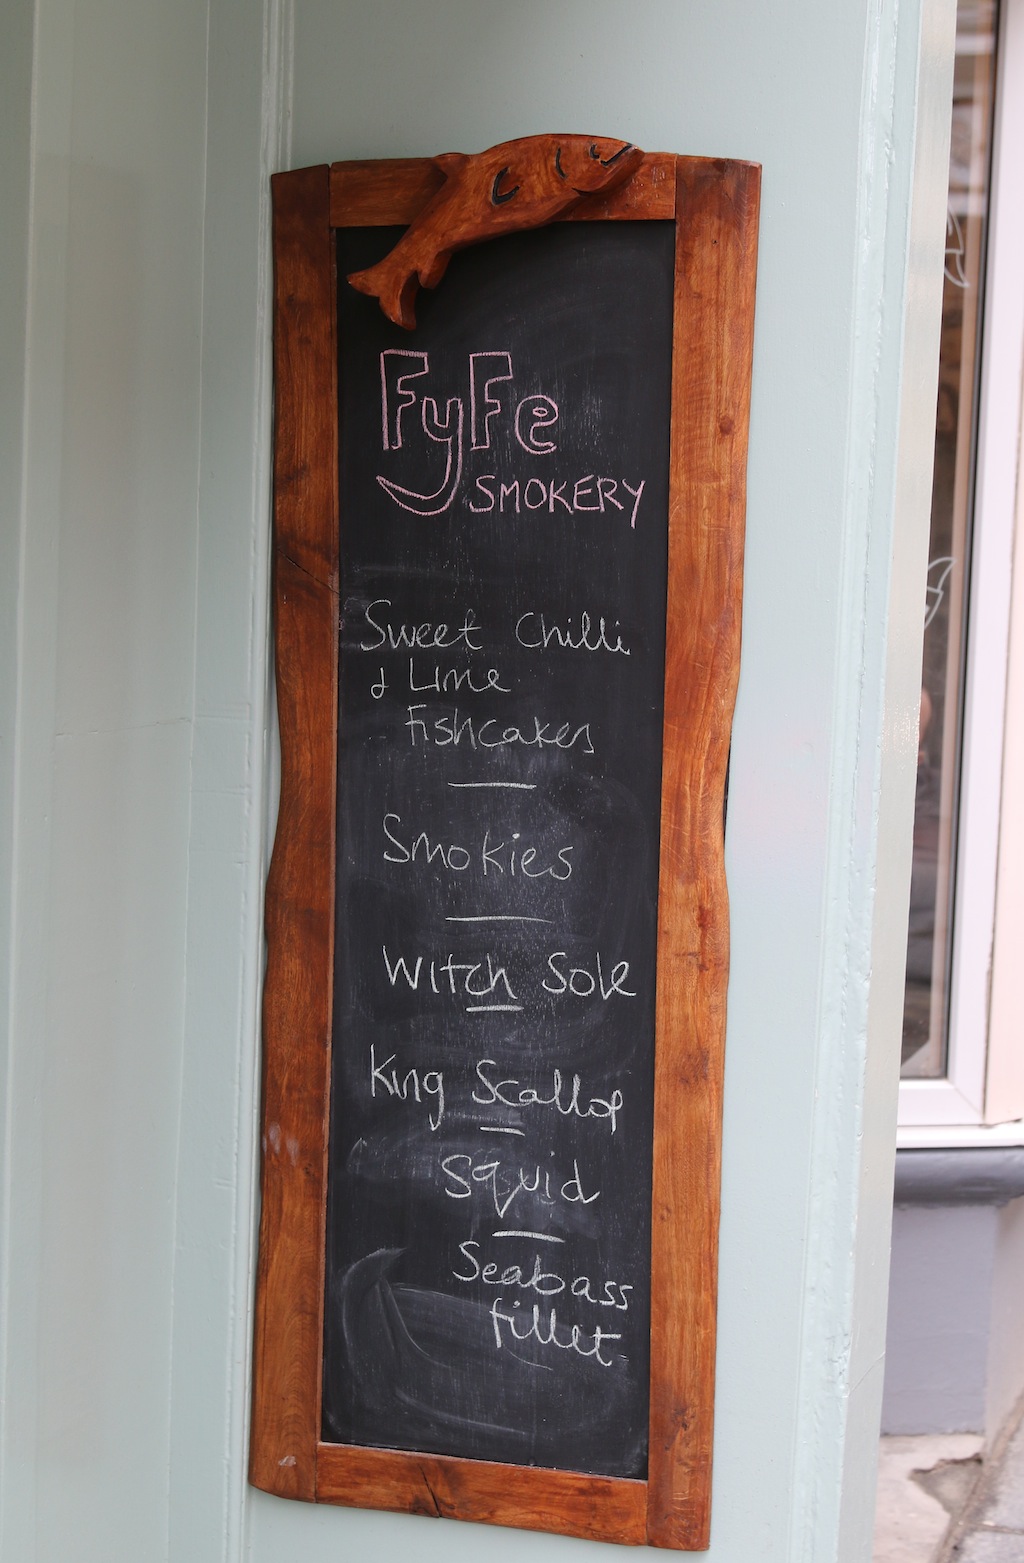 FyFe
SMOKERY
Sweet Chilli
& Lime
Fishcakes
Smokies
Witch Sole
King Scallop
Squid
Seabass
fillet